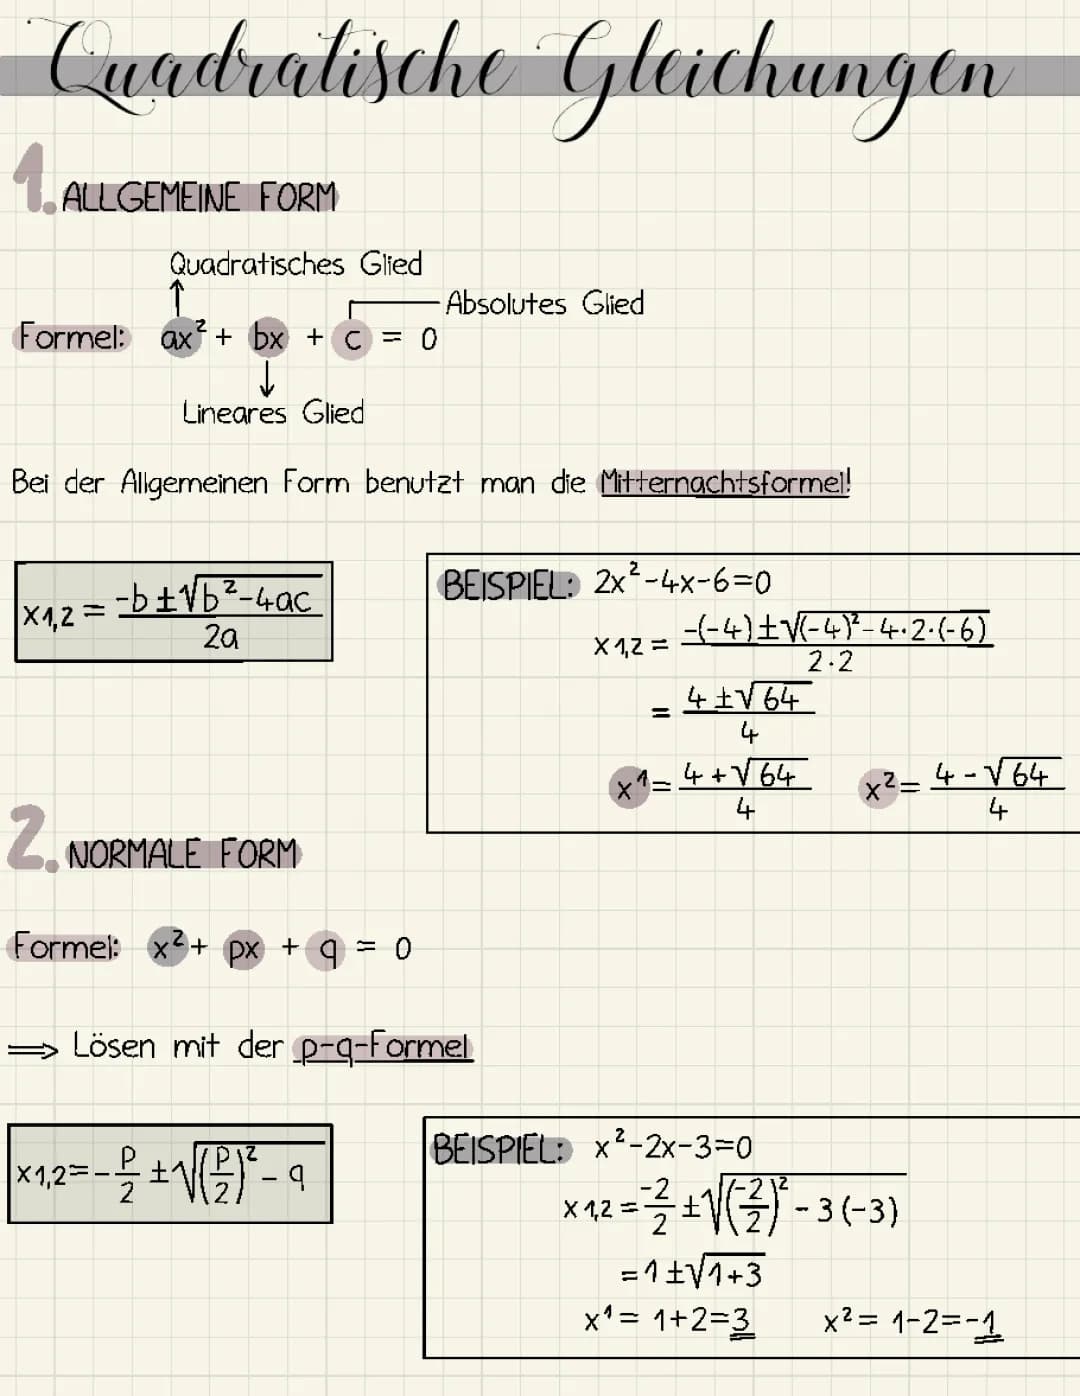 Quadratische Gleichungen
1. ALLGEMEINE FORM
Quadratisches Glied
Absolutes Glied
Formel: ax² + bx + c = 0
Lineares Glied
Bei der Allgemeinen Form benutzt man die Mitternachtsformel!
x1,2 = (-b±√(b²-4ac))/(2a)
BEISPIEL: 2x²-4x-6=0
x1,2 = (-(-4)±√((-4)²-4·2·(-6)))/(2·2)
= (4±√64)/4
x¹= (4+√64)/4 x²= (4-√64)/4
2. NORMALE FORM
Formel: x²+ px + q = 0
⟹ Lösen mit der p-q-Formel
x1,2=-p/2 ±√((p/2)²-q)
BEISPIEL: x²-2x-3=0
x1,2=-2/2 ±√((-2/2)²-3(-3))
=1±√(1+3)
x¹= 1+2=3 x²= 1-2=-1